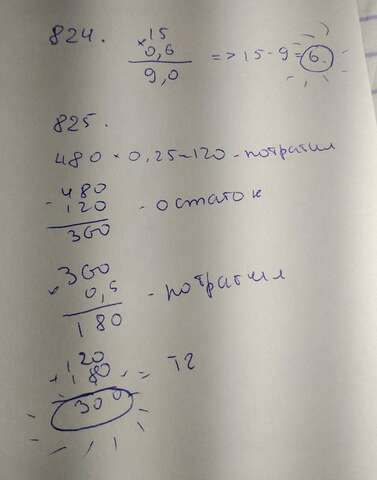 824.
15
× 0,6
9,0
=> 15 - 9 = 6.
825.
480 × 0,25 = 120 - потратил
- 480
120
360
- остаток
360
× 0,5
180
- потратил
120
+ 180
300
= тг